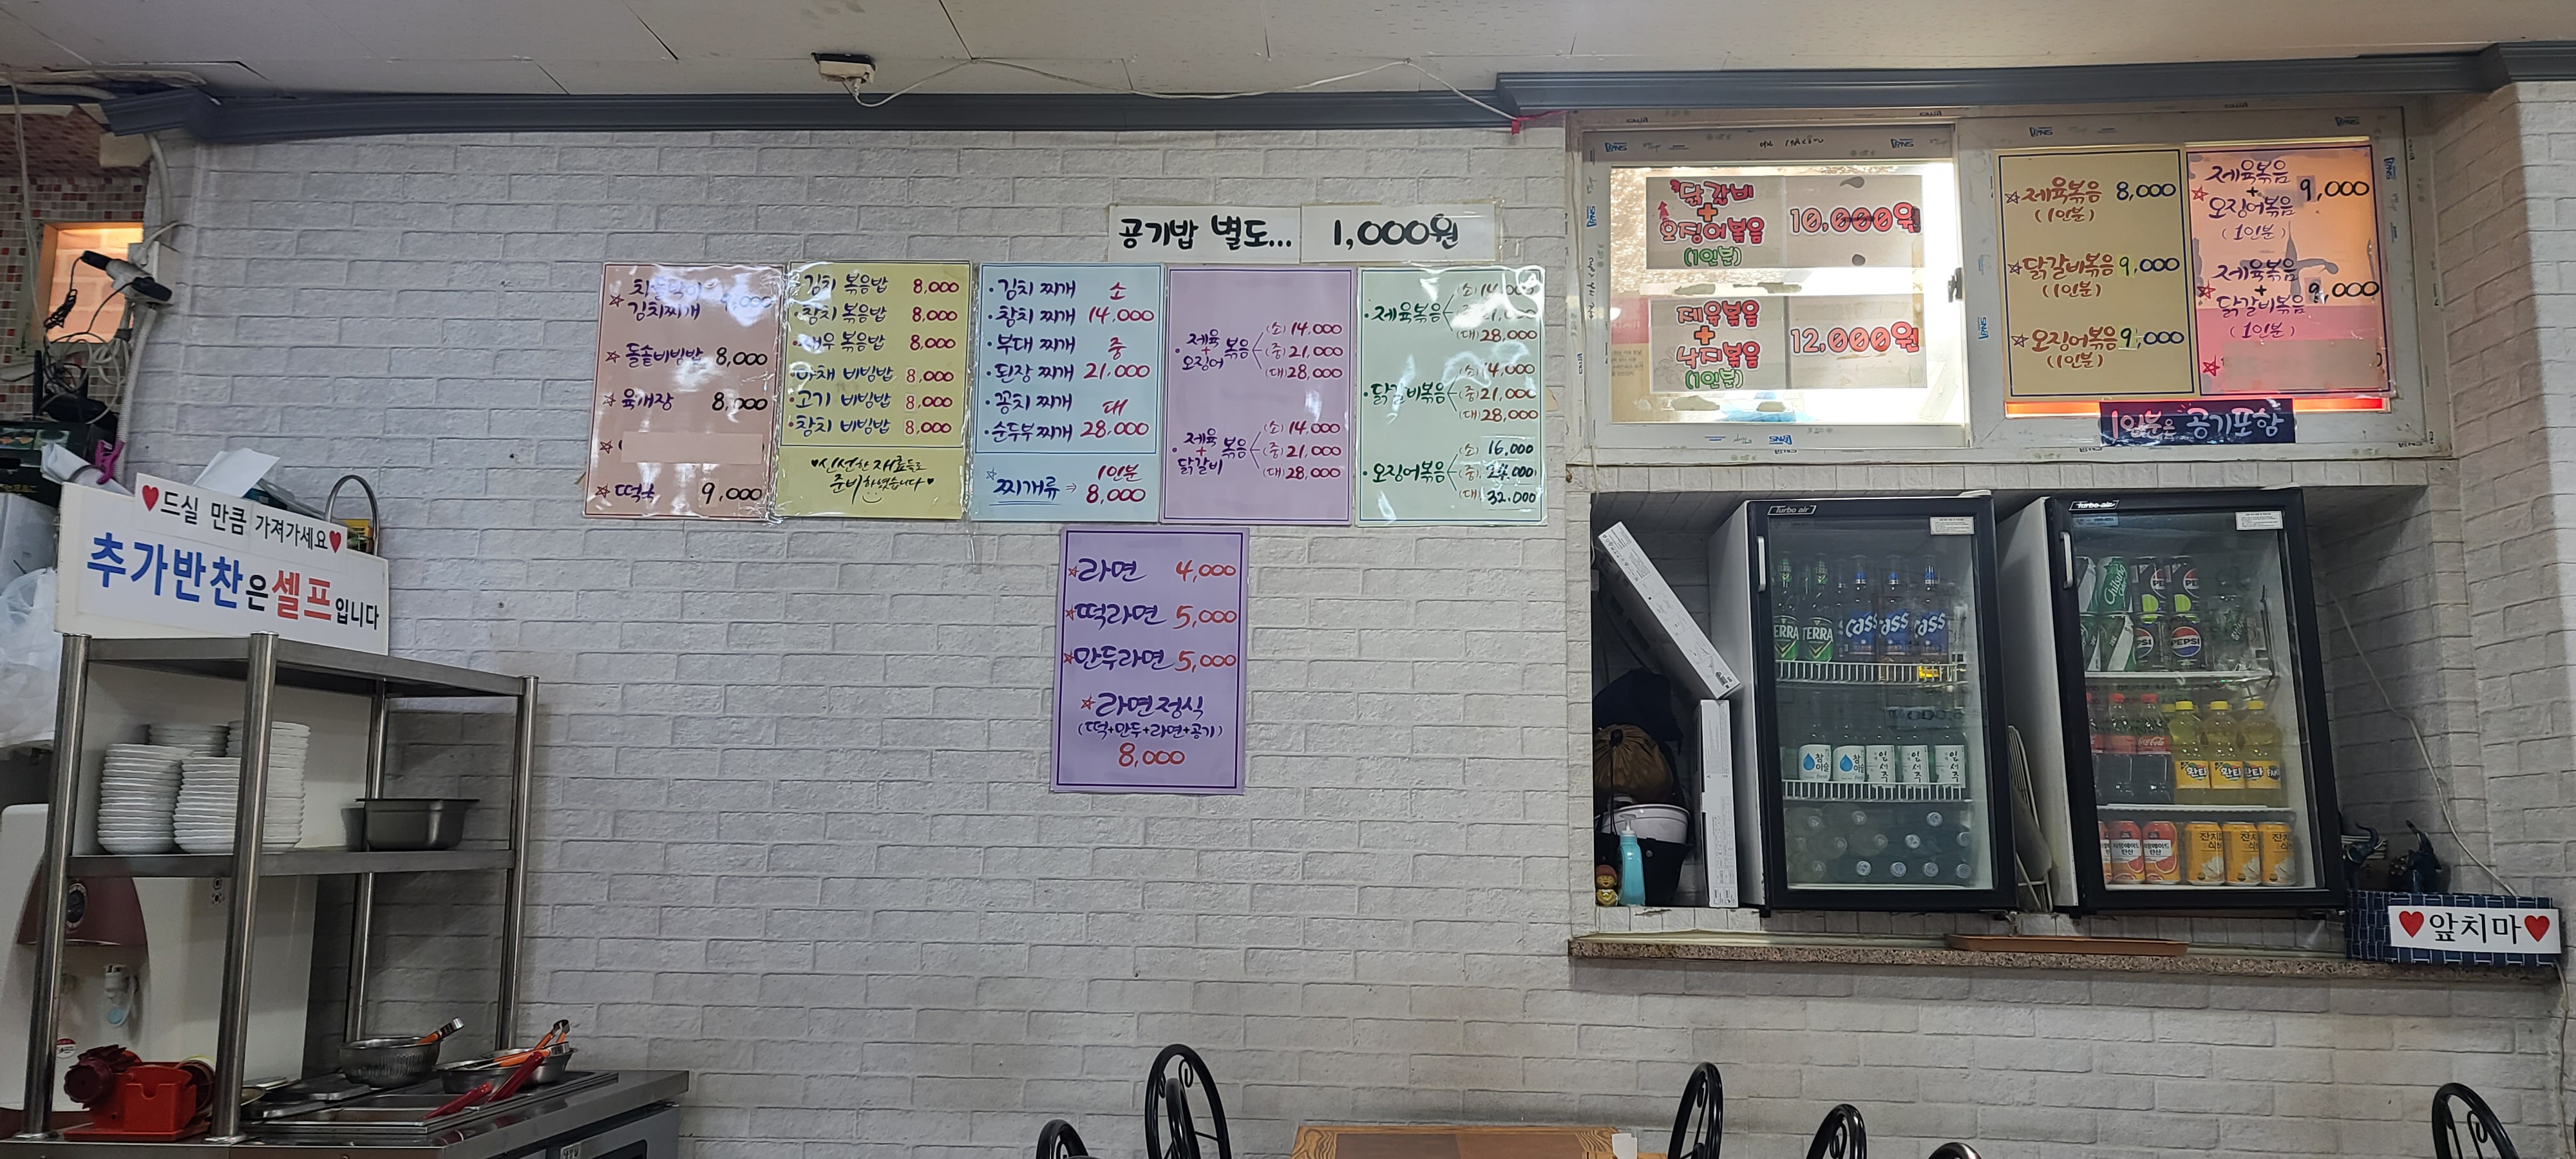 공기밥 별도... 1,000원
김치찌개
☆ 돌솥비빔밥 8,000
☆ 육개장 8,000
☆ 떡국 9,000
김치 볶음밥 8,000
· 참치 볶음밥 8,000
· 새우 볶음밥 8,000
· 야채 비빔밥 8,000
· 고기 비빔밥 8,000
· 참치 비빔밥 8,000
♥신선한 재료들로
준비하였습니다♥
· 김치 찌개 소
· 참치 찌개 14.000
· 부대 찌개 중
· 된장 찌개 21.000
· 꽁치 찌개 대
· 순두부 찌개 28,000
☆ 찌개류 ⇒ 1인분
8,000
· 제육
+
오징어
볶음
(소) 14.000
(중) 21,000
(대) 28,000
· 제육
+
닭갈비
볶음
(소) 14.000
(중) 21,000
(대) 28,000
· 제육볶음
(소) 14,000
(대) 28,000
· 닭갈비볶음
(소) 14,000
(중) 21,000
(대) 28,000
· 오징어볶음
(소) 16,000
(중) 24.000
(대) 32.000
☆라면 4,000
☆떡라면 5,000
☆만두라면 5,000
☆라면정식
(떡+만두+라면+공기)
8,000
닭갈비
+
오징어볶음
(1인분)
10,000원
제육볶음
+
낙지볶음
(1인분)
12,000원
☆제육볶음 8,000
(1인분)
☆닭갈비볶음 9,000
(1인분)
☆오징어볶음 9,000
(1인분)
☆ 제육볶음
+
오징어볶음
9,000
(1인분)
☆ 제육볶음
+
닭갈비볶음
9,000
(1인분)
1인분은 공기포함
♥드실 만큼 가져가세요♥
추가반찬은 셀프입니다
Turbo air
Turbo air
TERRA TERRA Cass Cass Cass
참이슬 참이슬 인선주 인선주
Chilsung
PEPSI
Coca-Cola
환타 환타
♥앞치마♥